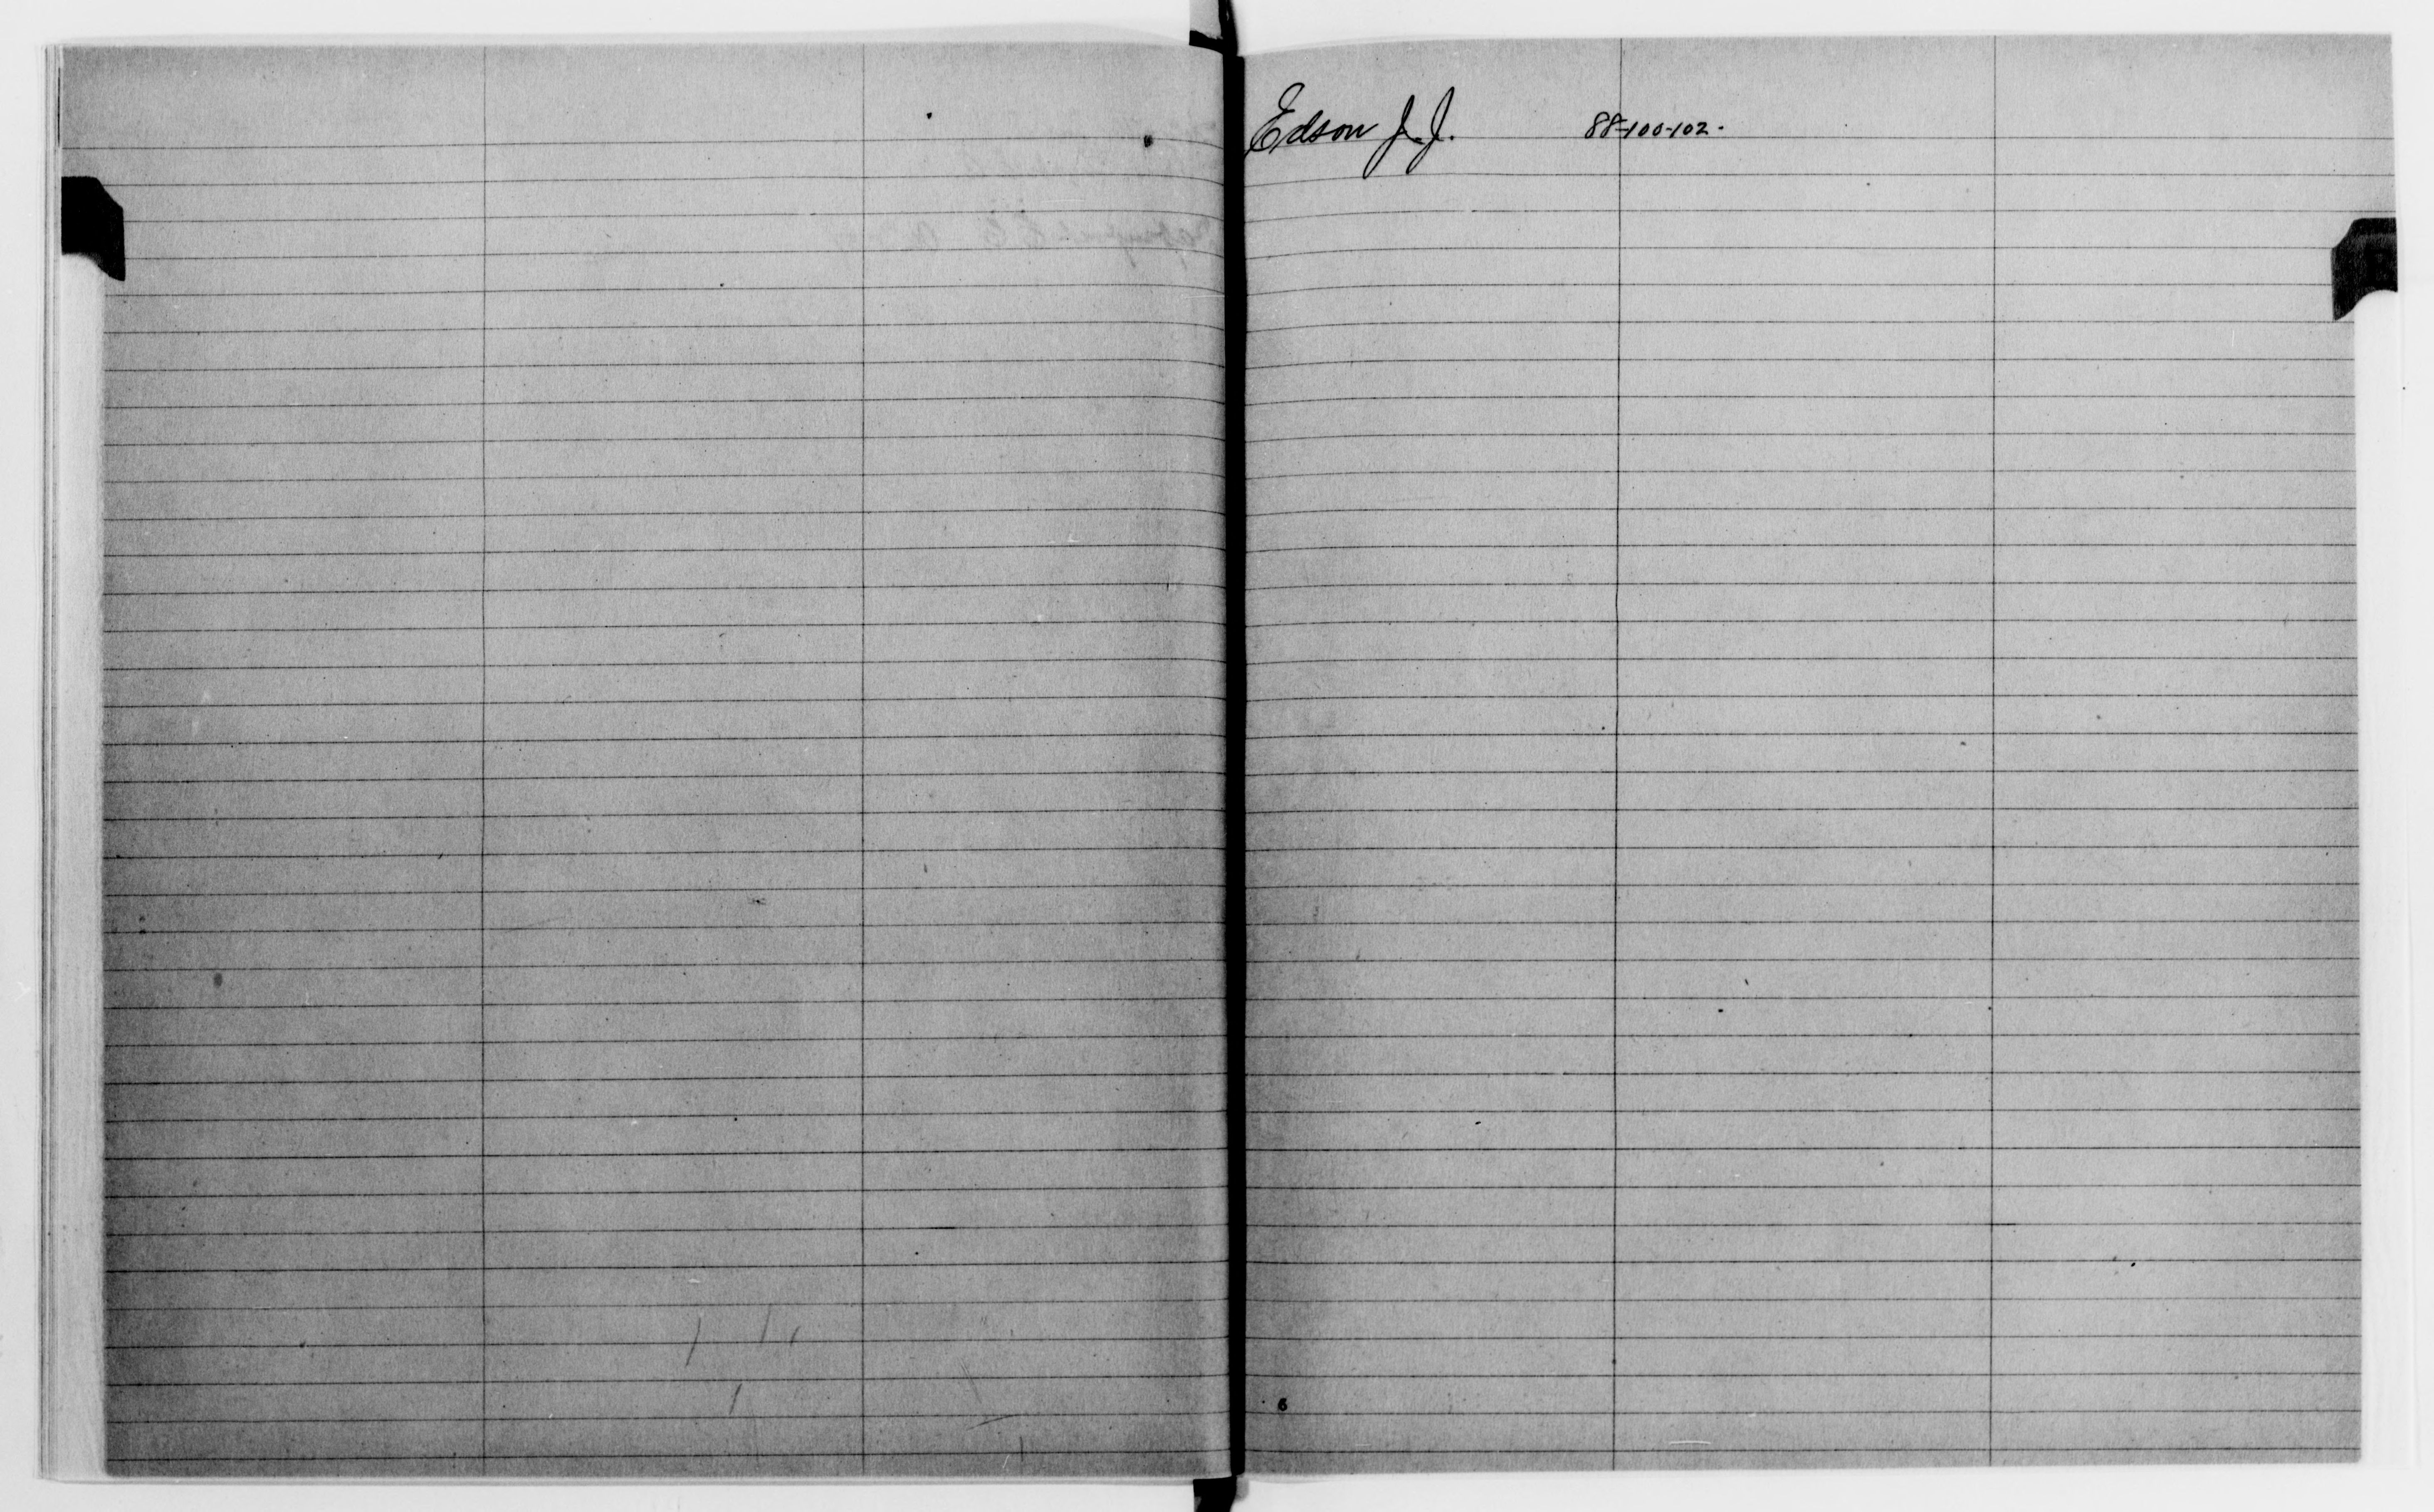 Edson J. J. 88-100-102.
6